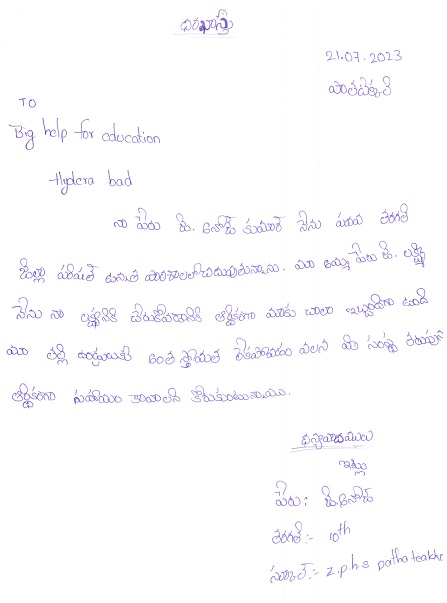 దరఖాస్తు
21.07.2023
పాతటెక్కలి
TO
Big help for education
Hydera bad
నా పేరు కె. వినోద్ కుమార్ నేను పదవ తరగతి
జిల్లా పరిషత్ ఉన్నత పాఠశాలలో చదువుతున్నాను. మా అమ్మ పేరు కె. లక్ష్మి
నేను నా లక్ష్యానికి చేరుకోవడానికి ఆర్థికంగా మాకు చాలా ఇబ్బందిగా ఉంది
మా తల్లి దండ్రులుకి అంత స్తోమత లేకపోవడం వలన మీ సంస్థ తరుపున
ఆర్థికంగా సహాయం కావాలని కోరుకుంటున్నాయి.
ధన్యవాదములు
ఇట్లు
పేరు: కె. వినోద్
తరగతి:- 10th
స్కూల్:- z.p.h.s